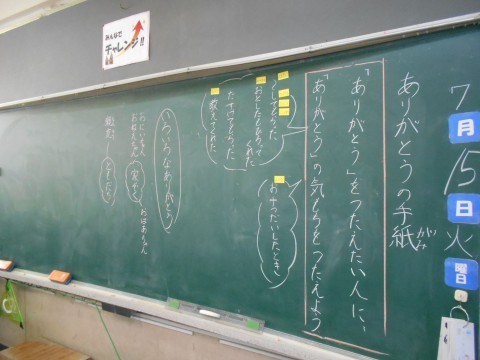 みんなで
チャレンジ!!
7月15日火曜日
ありがとうの手紙
がみ
「ありがとう」をつたえたい人に、
「ありがとう」の気もちをつたえよう
おとしものをひろってくれた
たすけてもらった
教えてくれた
お手つだいしたとき
いろいろなありがとう
おにいちゃん
おねえちゃん
家ぞく
おばあちゃん